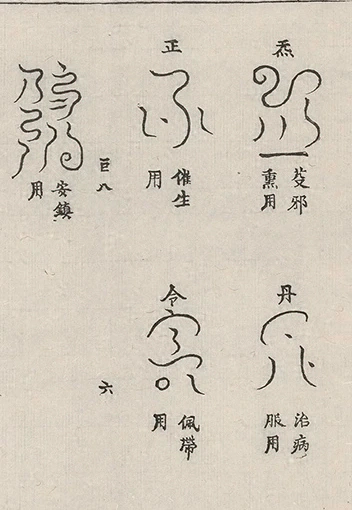 炁
芟邪
熏用
丹
治病
服用
正
催生
用
令
佩帶
用
巨八
六
安鎮
用